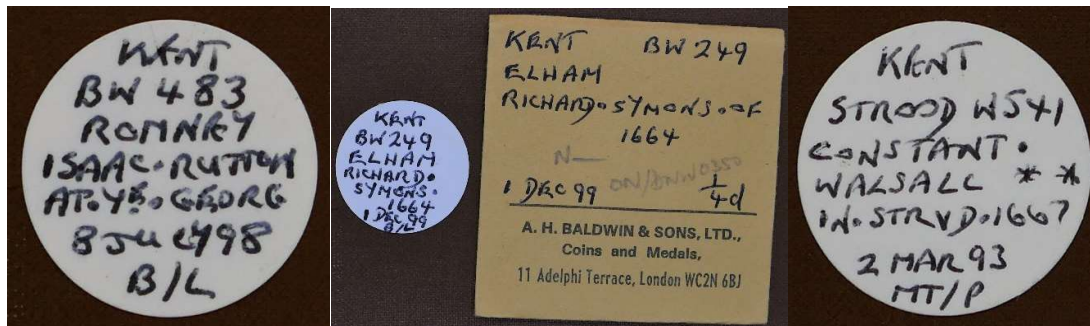 KENT
BW 483
ROMNEY
ISAAC. RUTTON
AT. YE. GEORG
8 JULY 98
B/L
KENT
BW 249
ELHAM
RICHARD.
SYMONS.
1664
1 DEC 99
B/L
KENT BW 249
ELHAM
RICHARD. SYMONS. OF
1664
N—
ON/BNW0350
1 DEC 99 1/4d
A. H. BALDWIN & SONS, LTD.,
Coins and Medals,
11 Adelphi Terrace, London WC2N 6BJ
KENT
STROOD W541
CONSTANT.
WALSALL * *
IN. STRVD. 1667
2 MAR 93
MT/P